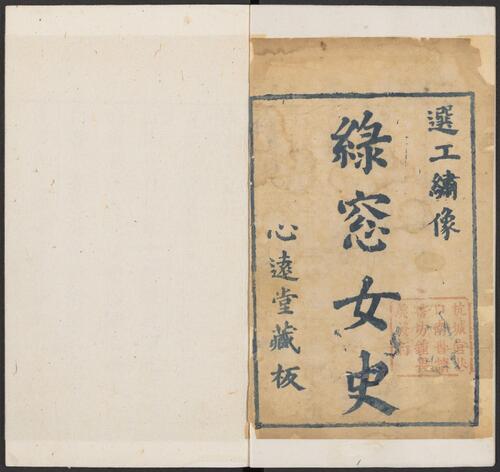 選工繡像
綠窓女史
心遠堂藏板